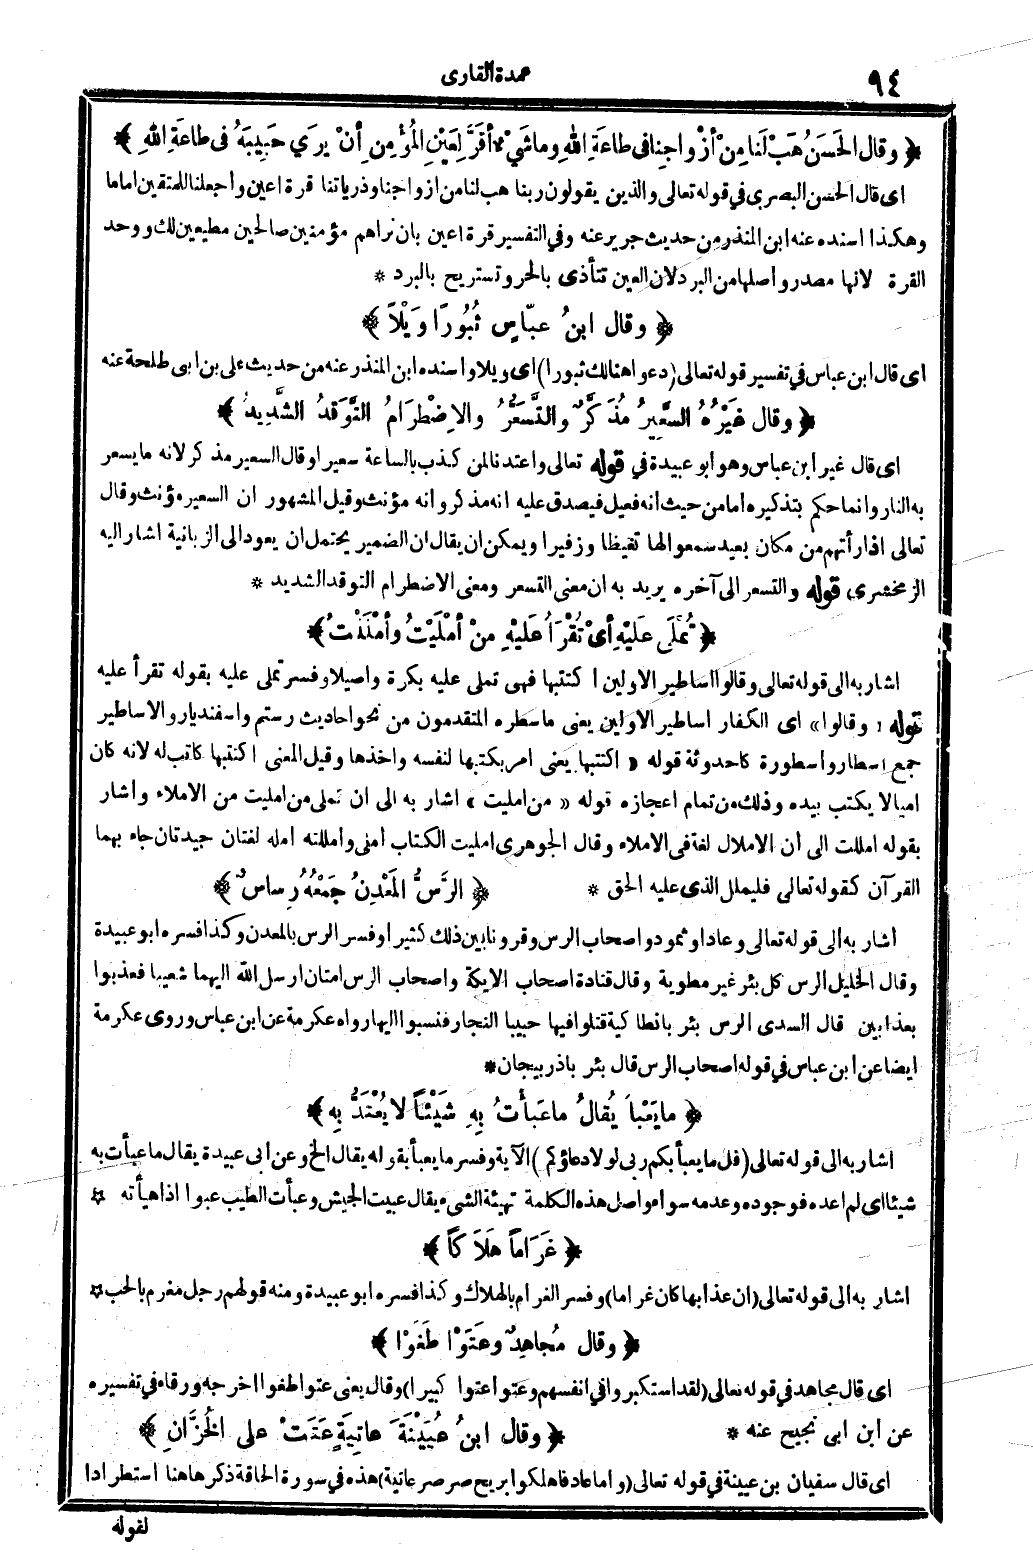 ٩٤
عمدة القارى
﴿ وقال الحَسَنُ هَبْ لَنا مِنْ أزْواجِنا فى طاعَةِ اللهِ وما شَيْءٌ أقَرَّ لِعَيْنِ المُؤْمِنِ أنْ يَرَي حَبِيبَهُ فى طاعَةِ اللهِ ﴾
اى قال الحسن البصرى فى قوله تعالى والذين يقولون ربنا هب لنا من ازواجنا وذرياتنا قرة اعين واجعلنا للمتقين اماما
وهكذا اسنده عنه ابن المنذر من حديث جرير عنه وفى التفسير قرة اعين بان نراهم مؤمنين صالحين مطيعين لك ووحد
القرة لانها مصدر واصلها من البرد لان العين تتأذى بالحر وتستريح بالبرد *
﴿ وقال ابنُ عبّاسٍ ثُبُورًا وَيْلاً ﴾
اى قال ابن عباس فى تفسير قوله تعالى (دعوا هنالك ثبورا) اى ويلا واسنده ابن المنذر عنه من حديث على بن ابى طلحة عنه
﴿ وقال غَيْرُهُ السَّعِيرُ مُذَكَّرٌ والتَّسَعُّرُ والاِضْطِرَامُ التَّوَقدُ الشَّدِيدُ ﴾
اى قال غير ابن عباس وهو ابو عبيدة في قوله تعالى واعتدنا لمن كذب بالساعة سعيرا وقال السعير مذكر لانه ما يسعر
به النار وانما حكم بتذكيره اما من حيث انه فعيل فيصدق عليه انه مذكر وانه مؤنث وقيل المشهور ان السعير مؤنث وقال
تعالى اذا رأتهم من مكان بعيد سمعوا لها تغيظا وزفيرا ويمكن ان يقال ان الضمير يحتمل ان يعود الى الزبانية اشار اليه
الزمخشرى قوله والتسعر الى آخره يريد به ان معنى التسعر ومعنى الاضطرام التوقد الشديد *
﴿ تُمْلَى عَلَيْهِ أىْ تُقْرَأُ عَلَيْهِ مِنْ أمْلَيْتُ وأمْلَلْتُ ﴾
اشار به الى قوله تعالى وقالوا اساطير الاولين اكتتبها فهى تملى عليه بكرة واصيلا وفسر تملى عليه بقوله تقرأ عليه
قوله « وقالوا» اى الكفار اساطير الاولين يعنى ما سطره المتقدمون من نحو احاديث رستم واسفنديار والاساطير
جمع اسطار واسطورة كاحدوثة قوله « اكتتبها يعنى امر بكتبها لنفسه واخذها وقيل المعنى اكتتبها كاتب له لانه كان
اميا لا يكتب بيده وذلك من تمام اعجازه قوله « من امليت » اشار به الى ان تملى من امليت من الاملاء واشار
بقوله امللت الى أن الاملال لغة فى الاملاء وقال الجوهرى امليت الكتاب املى وامللته امله لغتان جيدتان جاء بهما
القرآن كقوله تعالى فليملل الذى عليه الحق *
﴿ الرَّسُّ المَعْدِنُ جَمْعُهُ رِساسٌ ﴾
أشار به الى قوله تعالى وعادا وثمود واصحاب الرس وقرونا بين ذلك كثيرا وفسر الرس بالمعدن وكذا فسره ابو عبيدة
وقال الخليل الرس كل بئر غير مطوية وقال قتادة اصحاب الايكة واصحاب الرس امتان ارسل الله اليهما شعيبا فعذبوا
بعذابين قال السدى الرس بئر بانطاكية قتلوا فيها حبيبا النجار فنسبوا اليها رواه عكرمة عن ابن عباس وروى عكرمة
ايضا عن ابن عباس فى قوله اصحاب الرس قال بئر باذربيجان *
﴿ ما يَعْبأُ يُقالُ ما عَبأتُ بِهِ شَيْئاً لا يُعْتَدُّ بِهِ ﴾
اشار به الى قوله تعالى (قل ما يعبأ بكم ربى لولا دعاؤكم) الآية وفسر ما يعبأ بقوله يقال الخ وعن ابى عبيدة يقال ما عبأت به
شيئا اى لم اعده فوجوده وعدمه سواء واصل هذه الكلمة تهيئة الشىء يقال عبيت الجيش وعبأت الطيب عبوا اذا هيأته *
﴿ غَرَاماً هَلاَكاً ﴾
اشار به الى قوله تعالى (ان عذابها كان غراما) وفسر الغرام بالهلاك وكذا فسره ابو عبيدة ومنه قولهم رجل مغرم بالحب *
﴿ وقال مُجاهِدٌ وعَتَوْا طَغَوْا ﴾
اى قال مجاهد فى قوله تعالى (لقد استكبروا فى انفسهم وعتوا عتوا كبيرا) وقال يعنى عتوا طغوا اخرجه ورقاء فى تفسيره
عن ابن ابى نجيح عنه *
﴿ وقال ابنُ عُيَيْنَةَ عاتِيَةٍ عَتَتْ على الخُزَّانِ ﴾
اى قال سفيان بن عيينة فى قوله تعالى (واما عاد فاهلكوا بريح صرصر عاتية) هذه فى سورة الحاقة ذكرها هنا استطرادا
لقوله